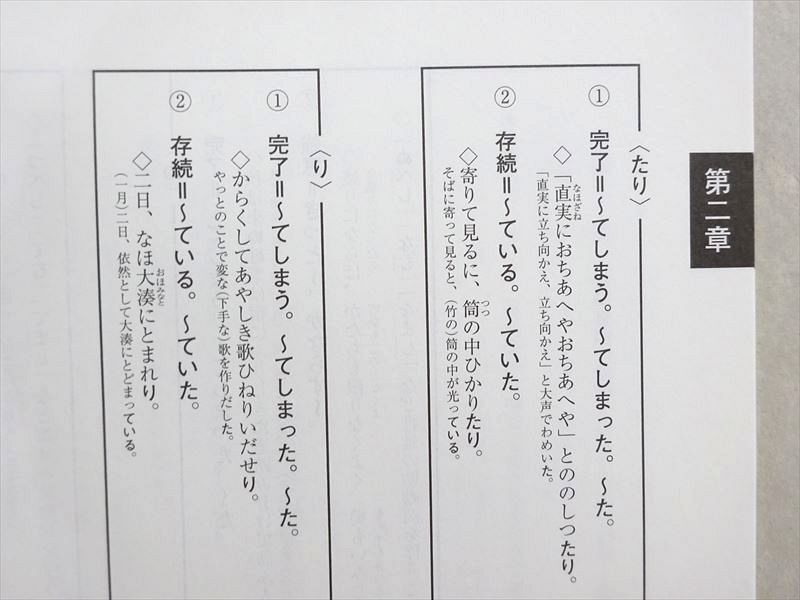 第二章
〈たり〉
① 完了＝〜てしまう。〜てしまった。〜た。
◇「直実におちあへやおちあへや」とののしつたり。
なほざね
「直実に立ち向かえ、立ち向かえ」と大声でわめいた。
② 存続＝〜ている。〜ていた。
◇寄りて見るに、筒の中ひかりたり。
つつ
そばに寄って見ると、（竹の）筒の中が光っている。
〈り〉
① 完了＝〜てしまう。〜てしまった。〜た。
◇からくしてあやしき歌ひねりいだせり。
やっとのことで変な（下手な）歌を作りだした。
② 存続＝〜ている。〜ていた。
◇二日、なほ大湊にとまれり。
おほみなと
（一月）二日、依然として大湊にとどまっている。